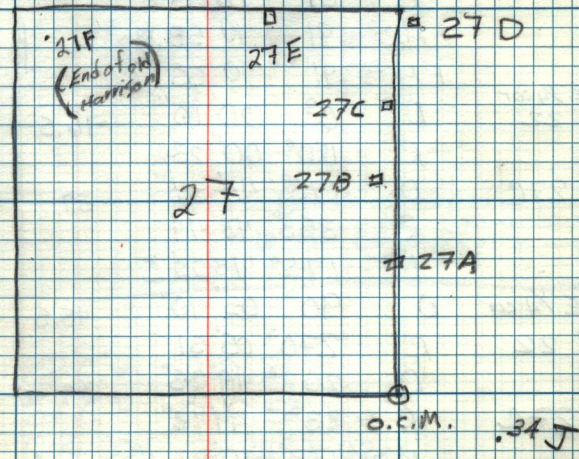 27F
(End of old
Harrison)
27E
27D
27C
27B
27
27A
O.C.M.
.34 J